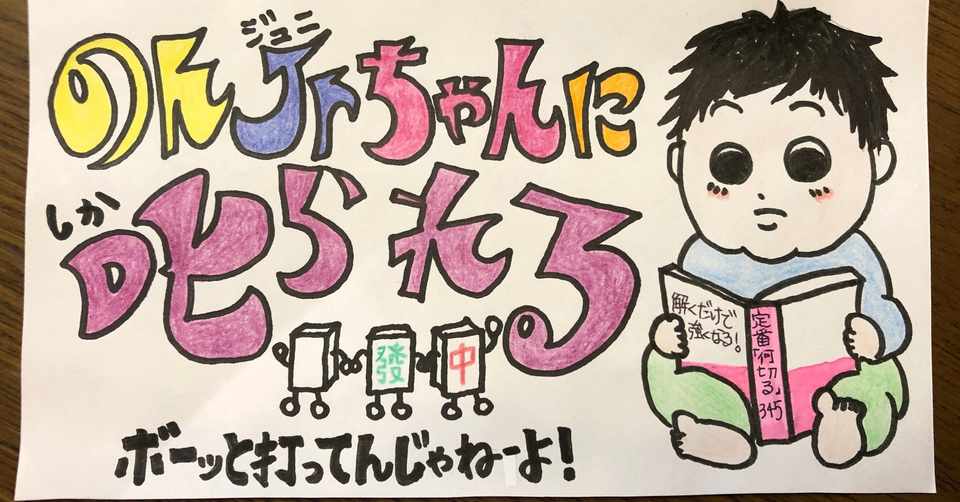 ジュニ
のんJrちゃんに
しか
叱られる
發 中
ボーッと打ってんじゃねーよ!
解くだけで
強くなる!
定番「何切る」345